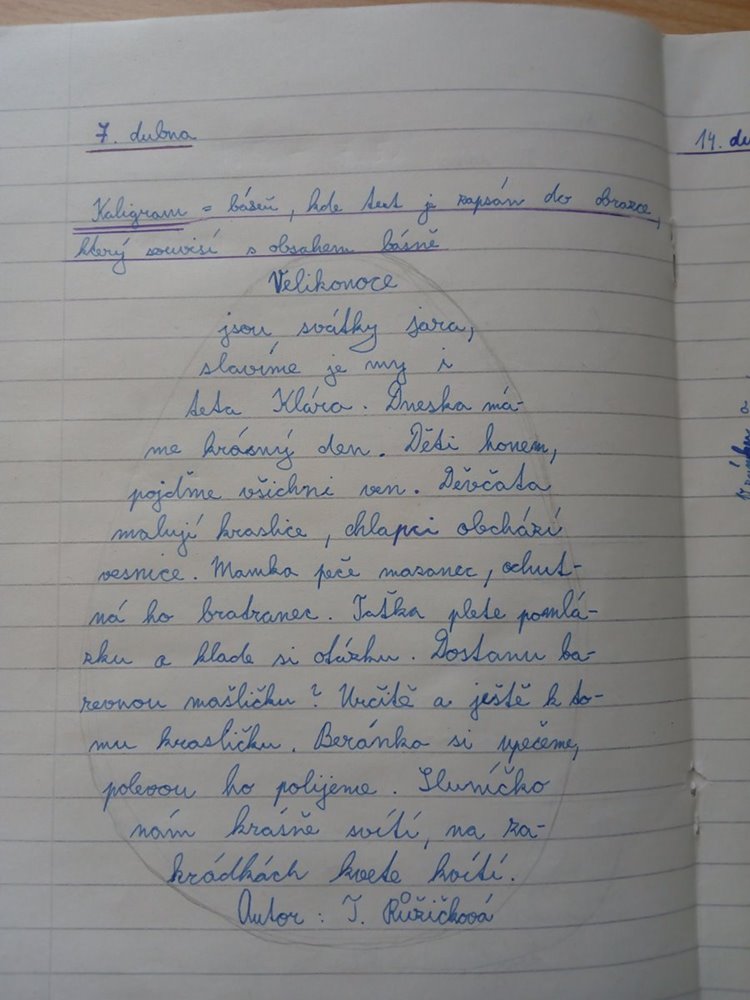 7. dubna
14. du
Kaligram = báseň, kde text je zapsán do obrazce,
který souvisí s obsahem básně
Velikonoce
jsou svátky jara,
slavíme je my i
teta Klára. Dneska má-
me krásný den. Děti honem,
pojďme všichni ven. Děvčata
malují kraslice, chlapci obchází
vesnice. Mamka peče mazanec, ochut-
ná ho bratranec. Taťka plete pomlá-
zku a klade si otázku. Dostanu ba-
revnou mašličku? Určitě a ještě k to-
mu krasličku. Beránka si upečeme,
polevou ho polijeme. Sluníčko
nám krásně svítí, na za-
hrádkách kvete kvítí.
Autor: J. Růžičková